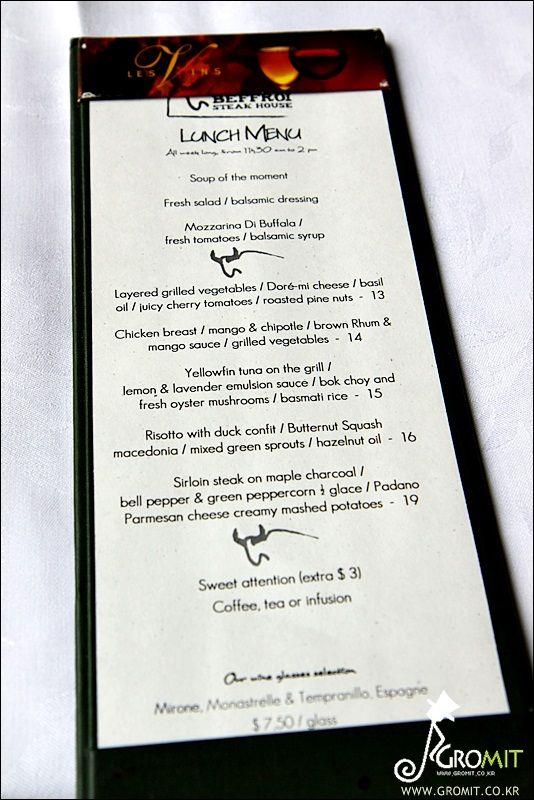 LES VINS
BEFFROI
STEAK HOUSE
LUNCH MENU
All week long, from 11h30 am to 2 pm
Soup of the moment
Fresh salad / balsamic dressing
Mozzarina Di Buffala /
fresh tomatoes / balsamic syrup
Layered grilled vegetables / Doré-mi cheese / basil
oil / juicy cherry tomatoes / roasted pine nuts - 13
Chicken breast / mango & chipotle / brown Rhum &
mango sauce / grilled vegetables - 14
Yellowfin tuna on the grill /
lemon & lavender emulsion sauce / bok choy and
fresh oyster mushrooms / basmati rice - 15
Risotto with duck confit / Butternut Squash
macedonia / mixed green sprouts / hazelnut oil - 16
Sirloin steak on maple charcoal /
bell pepper & green peppercorn ½ glace / Padano
Parmesan cheese creamy mashed potatoes - 19
Sweet attention (extra $ 3)
Coffee, tea or infusion
Our wine glasses selection
Mirone, Monastrelle & Tempranillo, Espagne
$ 7,50 / glass
GROMIT
WWW.GROMIT.CO.KR
WWW.GROMIT.CO.KR